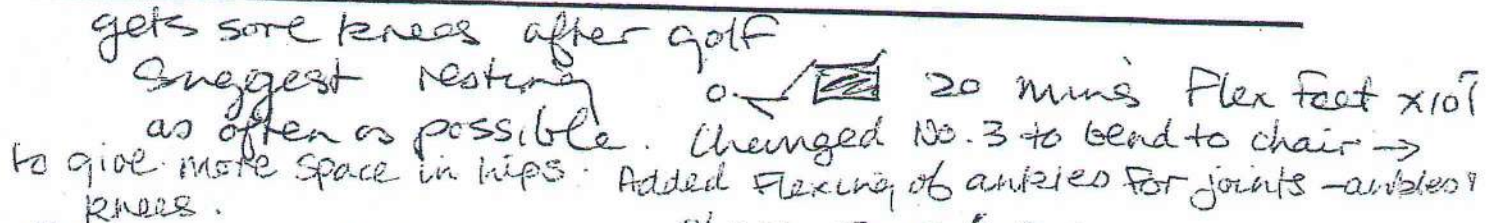 gets sore knees after golf
Suggest resting 20 mins Flex feet x10
as often as possible. Changed No. 3 to bend to chair →
to give more space in hips. Added Flexing of ankles for joints - ankles
knees.